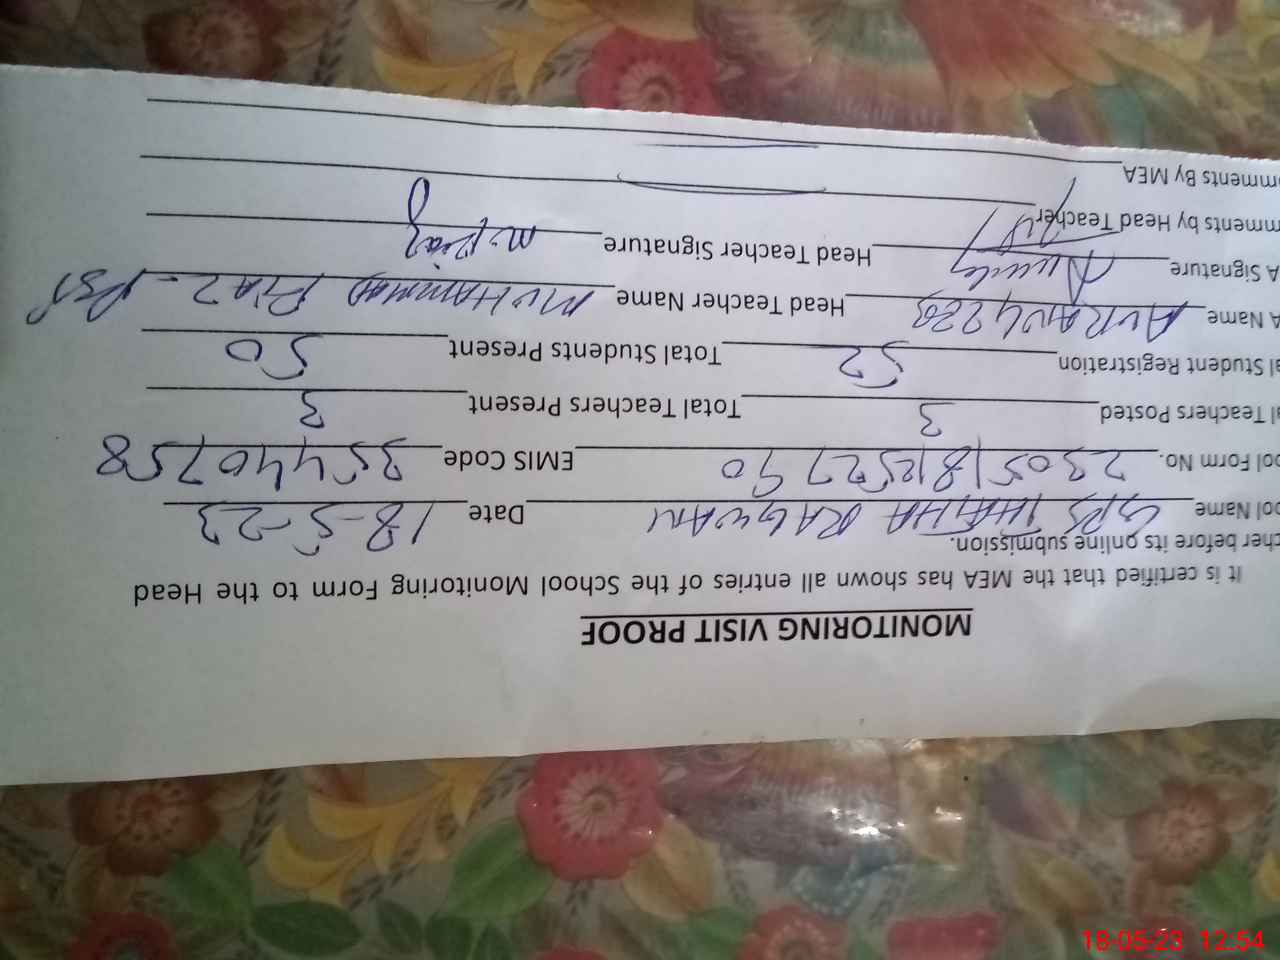 MONITORING VISIT PROOF
It is certified that the MEA has shown all entries of the School Monitoring Form to the Head
cher before its online submission.
ool Name GPS THATHA RAGWANI Date 18-5-23
ool Form No. 230518152790 EMIS Code 35440758
al Teachers Posted 3 Total Teachers Present 3
al Student Registration 52 Total Students Present 50
A Name Head Teacher Name MUHAMMAD RIAZ - PST
A Signature Head Teacher Signature M. Riaz
mments by Head Teacher
omments By MEA
18-05-23 12:54